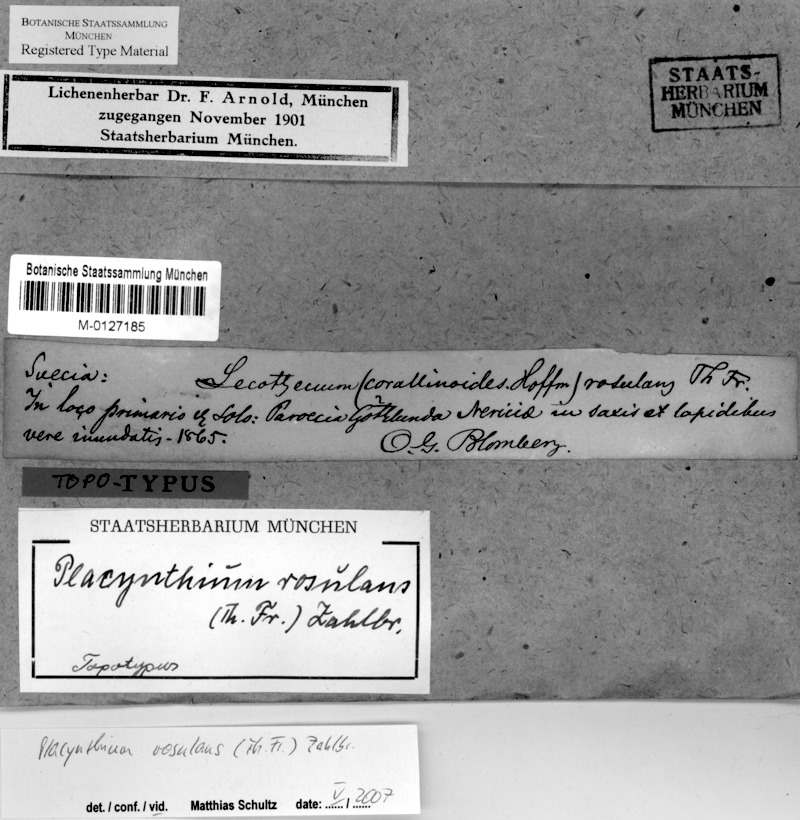 BOTANISCHE STAATSSAMMLUNG
MÜNCHEN
Registered Type Material
Lichenenherbar Dr. F. Arnold, München
zugegangen November 1901
Staatsherbarium München.
STAATS-
HERBARIUM
MÜNCHEN
Botanische Staatssammlung München
M-0127185
Suecia: Lecothecium (corallinoides. Hoffm) rosulans Th Fr.
In loco primario solo: Paroecia Götlunda Nericiæ in saxis et lapidibus
vere inundatis - 1865. O. G. Blomberg.
TOPO-TYPUS
STAATSHERBARIUM MÜNCHEN
Placynthium rosulans
(Th. Fr.) Zahlbr.
Topotypus
Placynthium rosulans (Th. Fr.) Zahlbr.
det. / conf. / vid. Matthias Schultz date: V / 2007